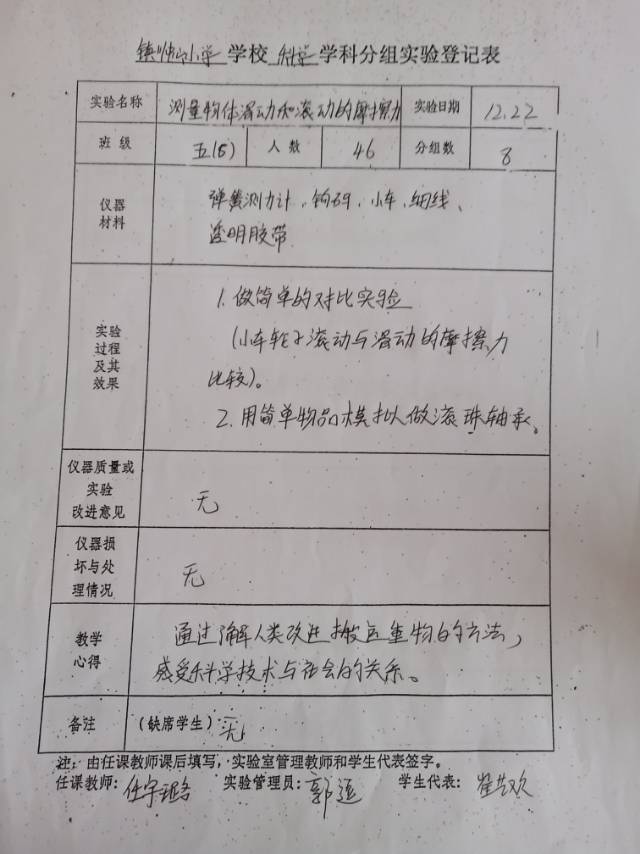 镇帅小学 学校 科学 学科分组实验登记表
实验名称 测量物体滑动和滚动的摩擦力 实验日期 12.22
班 级 五(5) 人 数 46 分组数 8
仪器材料 弹簧测力计、钩码、小车、细线、
透明胶带
实验过程及其效果 1. 做简单的对比实验
(小车轮子滚动与滑动的摩擦力
比较)。
2. 用简单物品模拟做滚珠轴承。
仪器质量或实验改进意见 无
仪器损坏与处理情况 无
教学心得 通过了解人类改进搬运重物的方法,
感受科学技术与社会的关系。
备注 (缺席学生) 无
注: 由任课教师课后填写,实验室管理教师和学生代表签字。
任课教师: 任宇 实验管理员: 郭 学生代表: